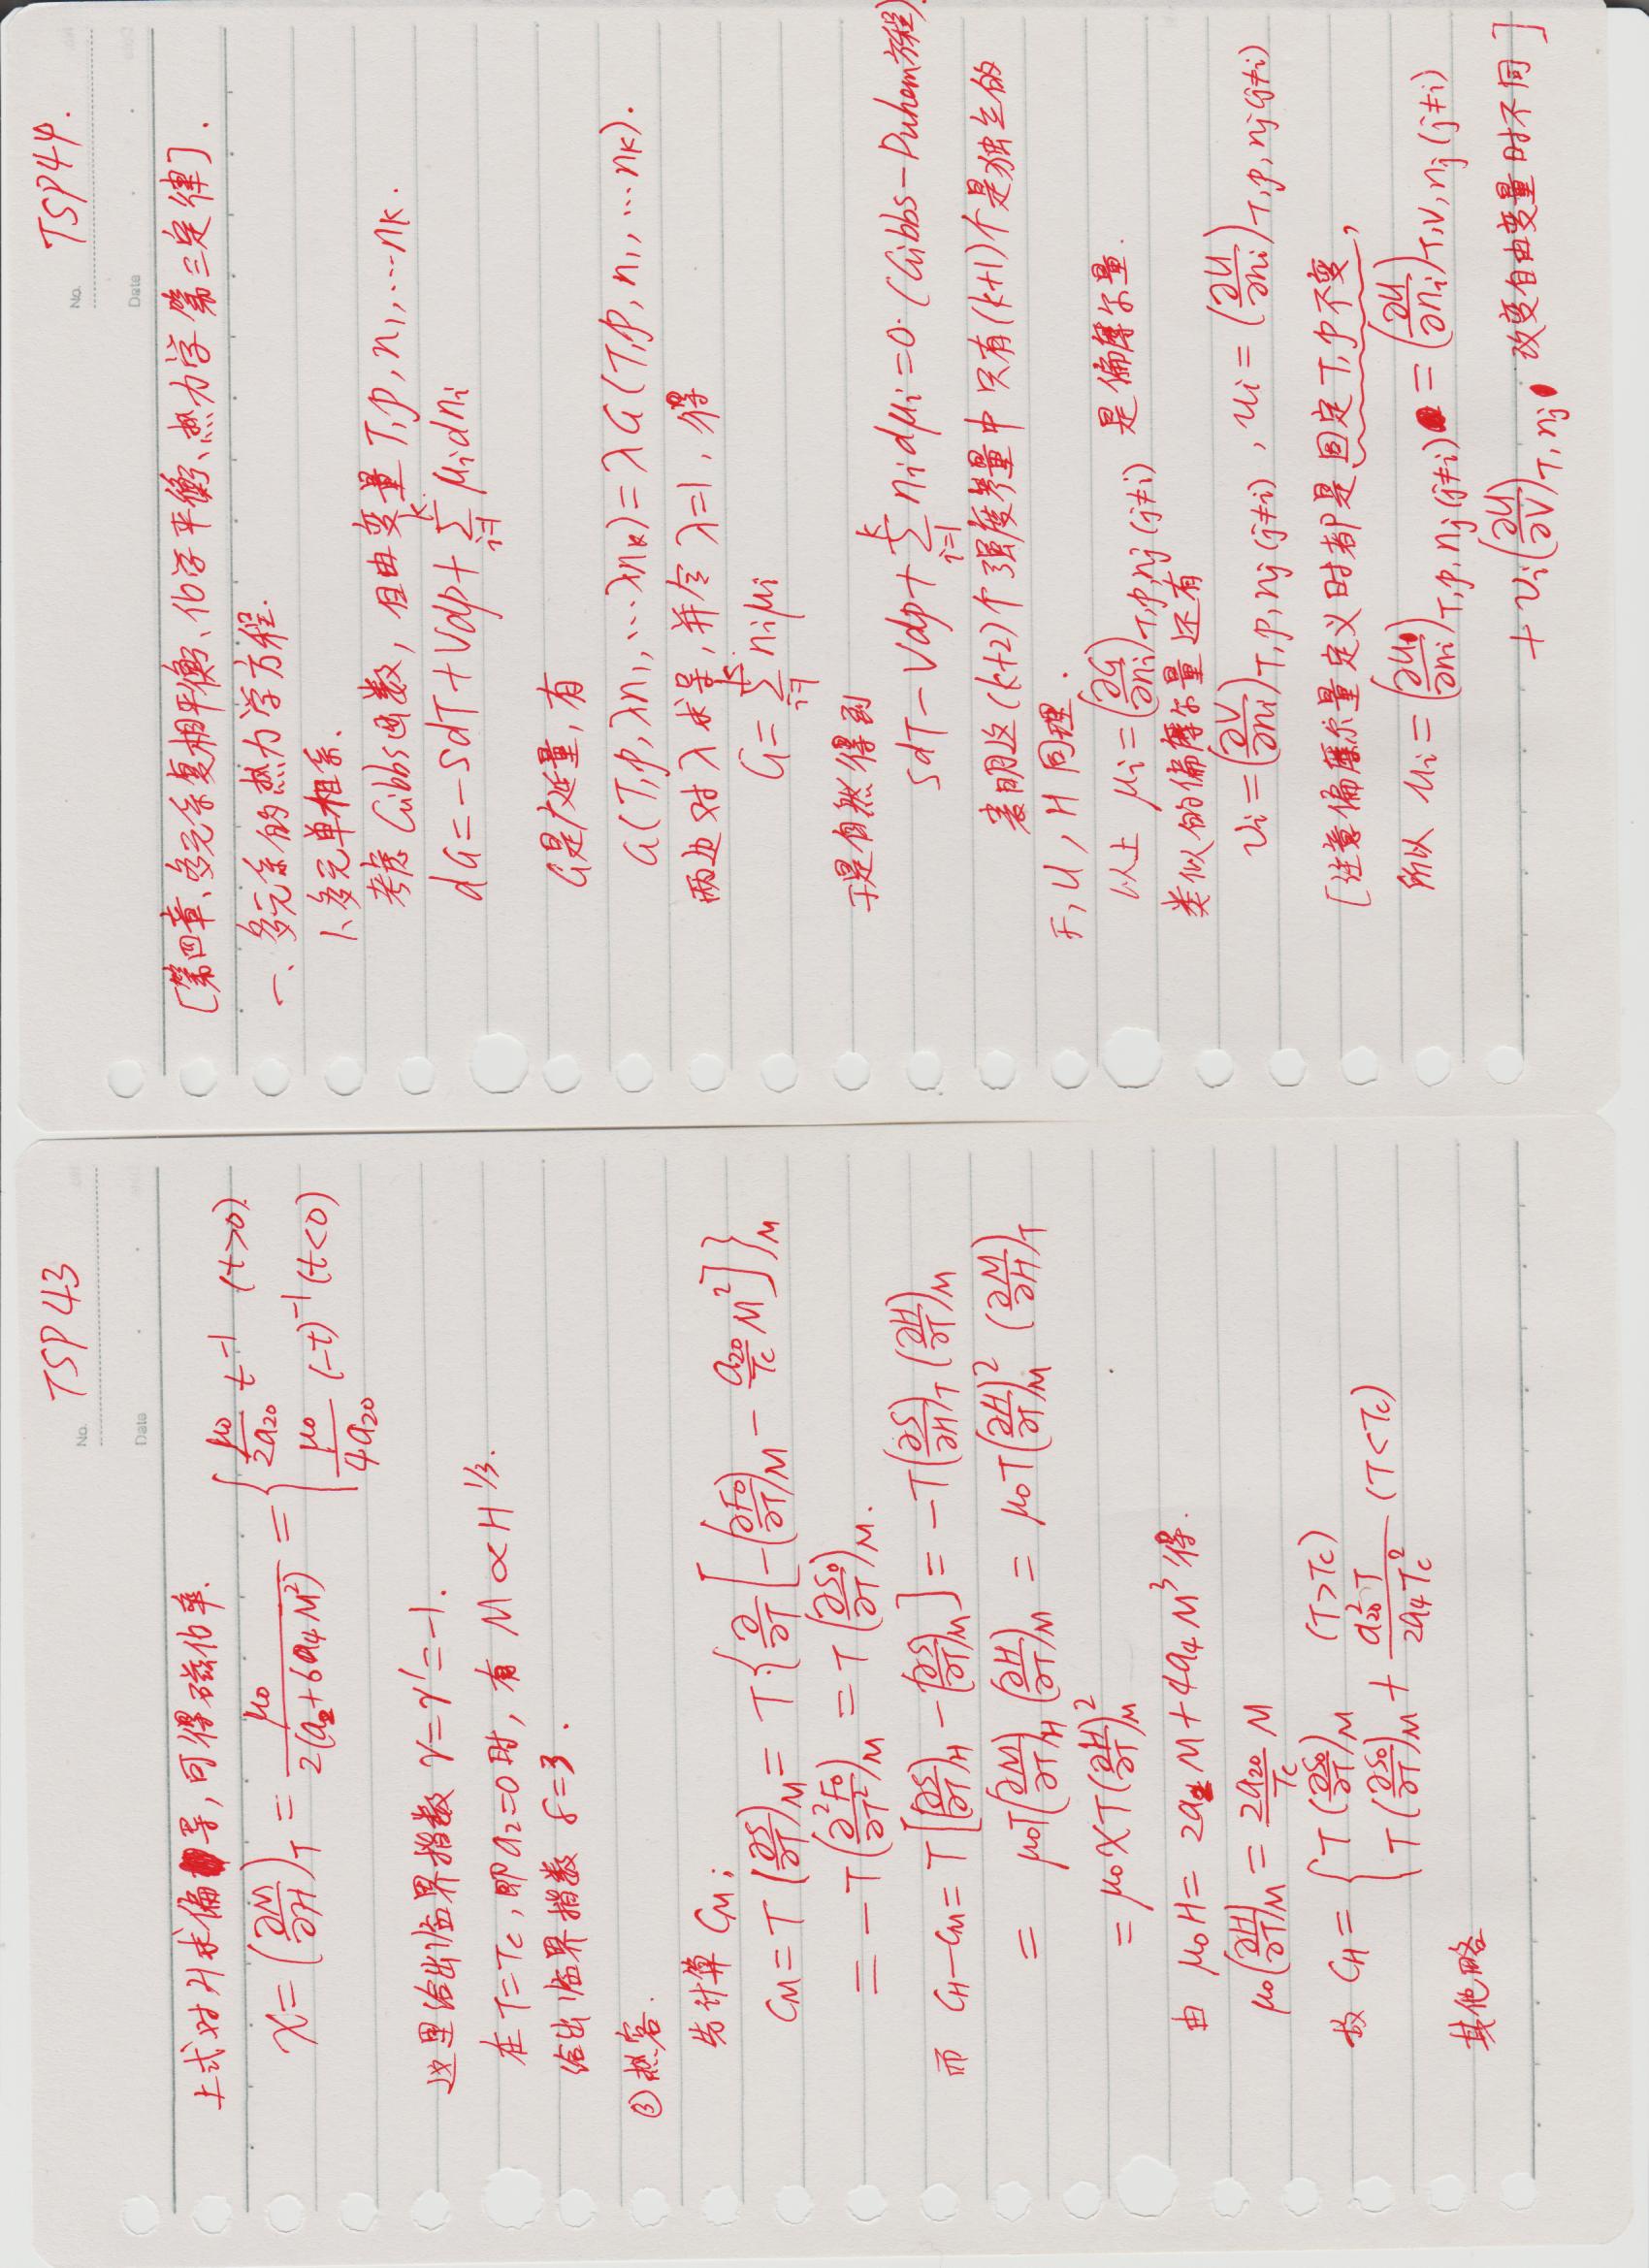 No. TSP43
Date
上式对H求偏导,可得磁化率.
χ=(∂M/∂H)_T = μ₀/(2(a₂+6a₄M²)) = { μ₀/(2a₂₀) t⁻¹ (t>0). μ₀/(4a₂₀) (-t)⁻¹ (t<0)
这里给出临界指数 γ=γ'=-1.
在T=Tc,即a₂=0时,有 M∝H^{1/3}.
给出临界指数 δ=3.
③热容.
先计算 C_M;
C_M=T(∂S/∂T)_M= T{∂/∂T[-(∂F₀/∂T)_M - (a₂₀/Tc)M²]}_M
= -T(∂²F₀/∂T²)_M = T(∂S₀/∂T)_M.
而 C_H-C_M= T[(∂S/∂T)_H-(∂S/∂T)_M] = -T(∂S/∂H)_T (∂H/∂T)_M
= μ₀T(∂M/∂T)_H (∂H/∂T)_M = μ₀T(∂H/∂T)²_M (∂M/∂H)_T
= μ₀χT(∂H/∂T)²_M
由 μ₀H= 2a₂M+4a₄M³得.
μ₀(∂H/∂T)_M = (2a₂₀/Tc) M
故 C_H= { T(∂S₀/∂T)_M (T>Tc)
T(∂S₀/∂T)_M + a₂₀²T/(2a₄Tc²) (T<Tc)
其他略
No. TSP44.
Date
[第四章、多元系复相平衡、化学平衡、热力学第三定律].
一、多元系的热力学方程.
1、多元单相系.
考虑Gibbs函数,自由变量T,p,n₁,…n_k.
dG=-SdT+Vdp+∑_{i=1}^{k} μᵢdnᵢ
G是广延量,有
G(T,p,λn₁,…λn_k)=λG(T,p,n₁,…n_k).
两边对λ求导,并令λ=1,得
G=∑_{i=1}^{k} nᵢμᵢ
于是自然得到
SdT-Vdp+∑_{i=1}^{k} nᵢdμᵢ=0.(Gibbs-Duhem方程)
表明这(k+2)个强度参量中只有(k+1)个是独立的
F,U,H同理.
以上 μᵢ=(∂G/∂nᵢ)_{T,p,nⱼ(j≠i)} 是偏摩尔量.
类似的偏摩尔量还有
vᵢ=(∂V/∂nᵢ)_{T,p,nⱼ(j≠i)} , uᵢ=(∂U/∂nᵢ)_{T,p,nⱼ(j≠i)}
[注意偏摩尔量定义时都是固定T,p不变,
所以 uᵢ=(∂U/∂nᵢ)_{T,p,nⱼ(j≠i)} =(∂U/∂nᵢ)_{T,V,nⱼ(j≠i)}
+vᵢ(∂U/∂V)_{T,nⱼ} 改变自由变量时不同]